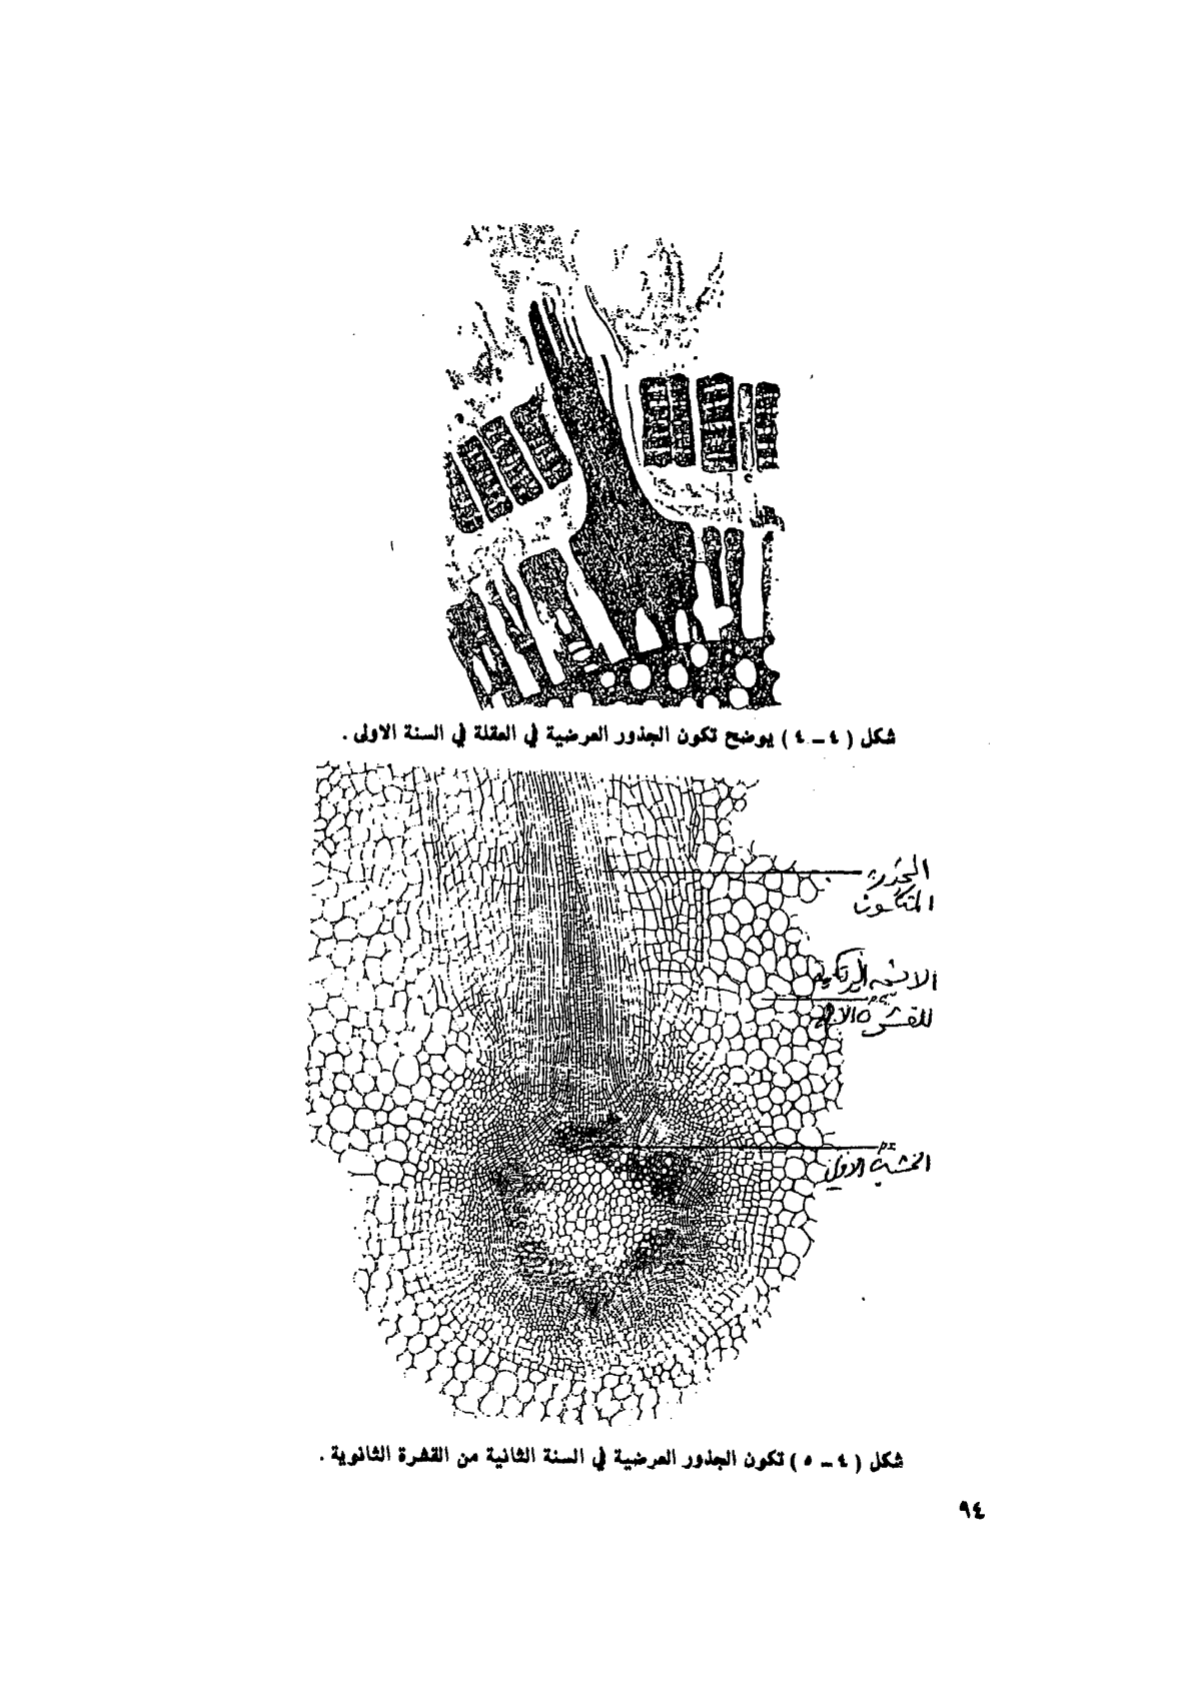 شكل ( ٤ – ٤ ) يوضح تكون الجذور العرضية في العقلة في السنة الاولى .
الجذر
المتكون
p.c
للقشرة
p.x
الخشب الاولي
شكل ( ٤ – ٥ ) تكون الجذور العرضية في السنة الثانية من القشرة الثانوية .
٩٤